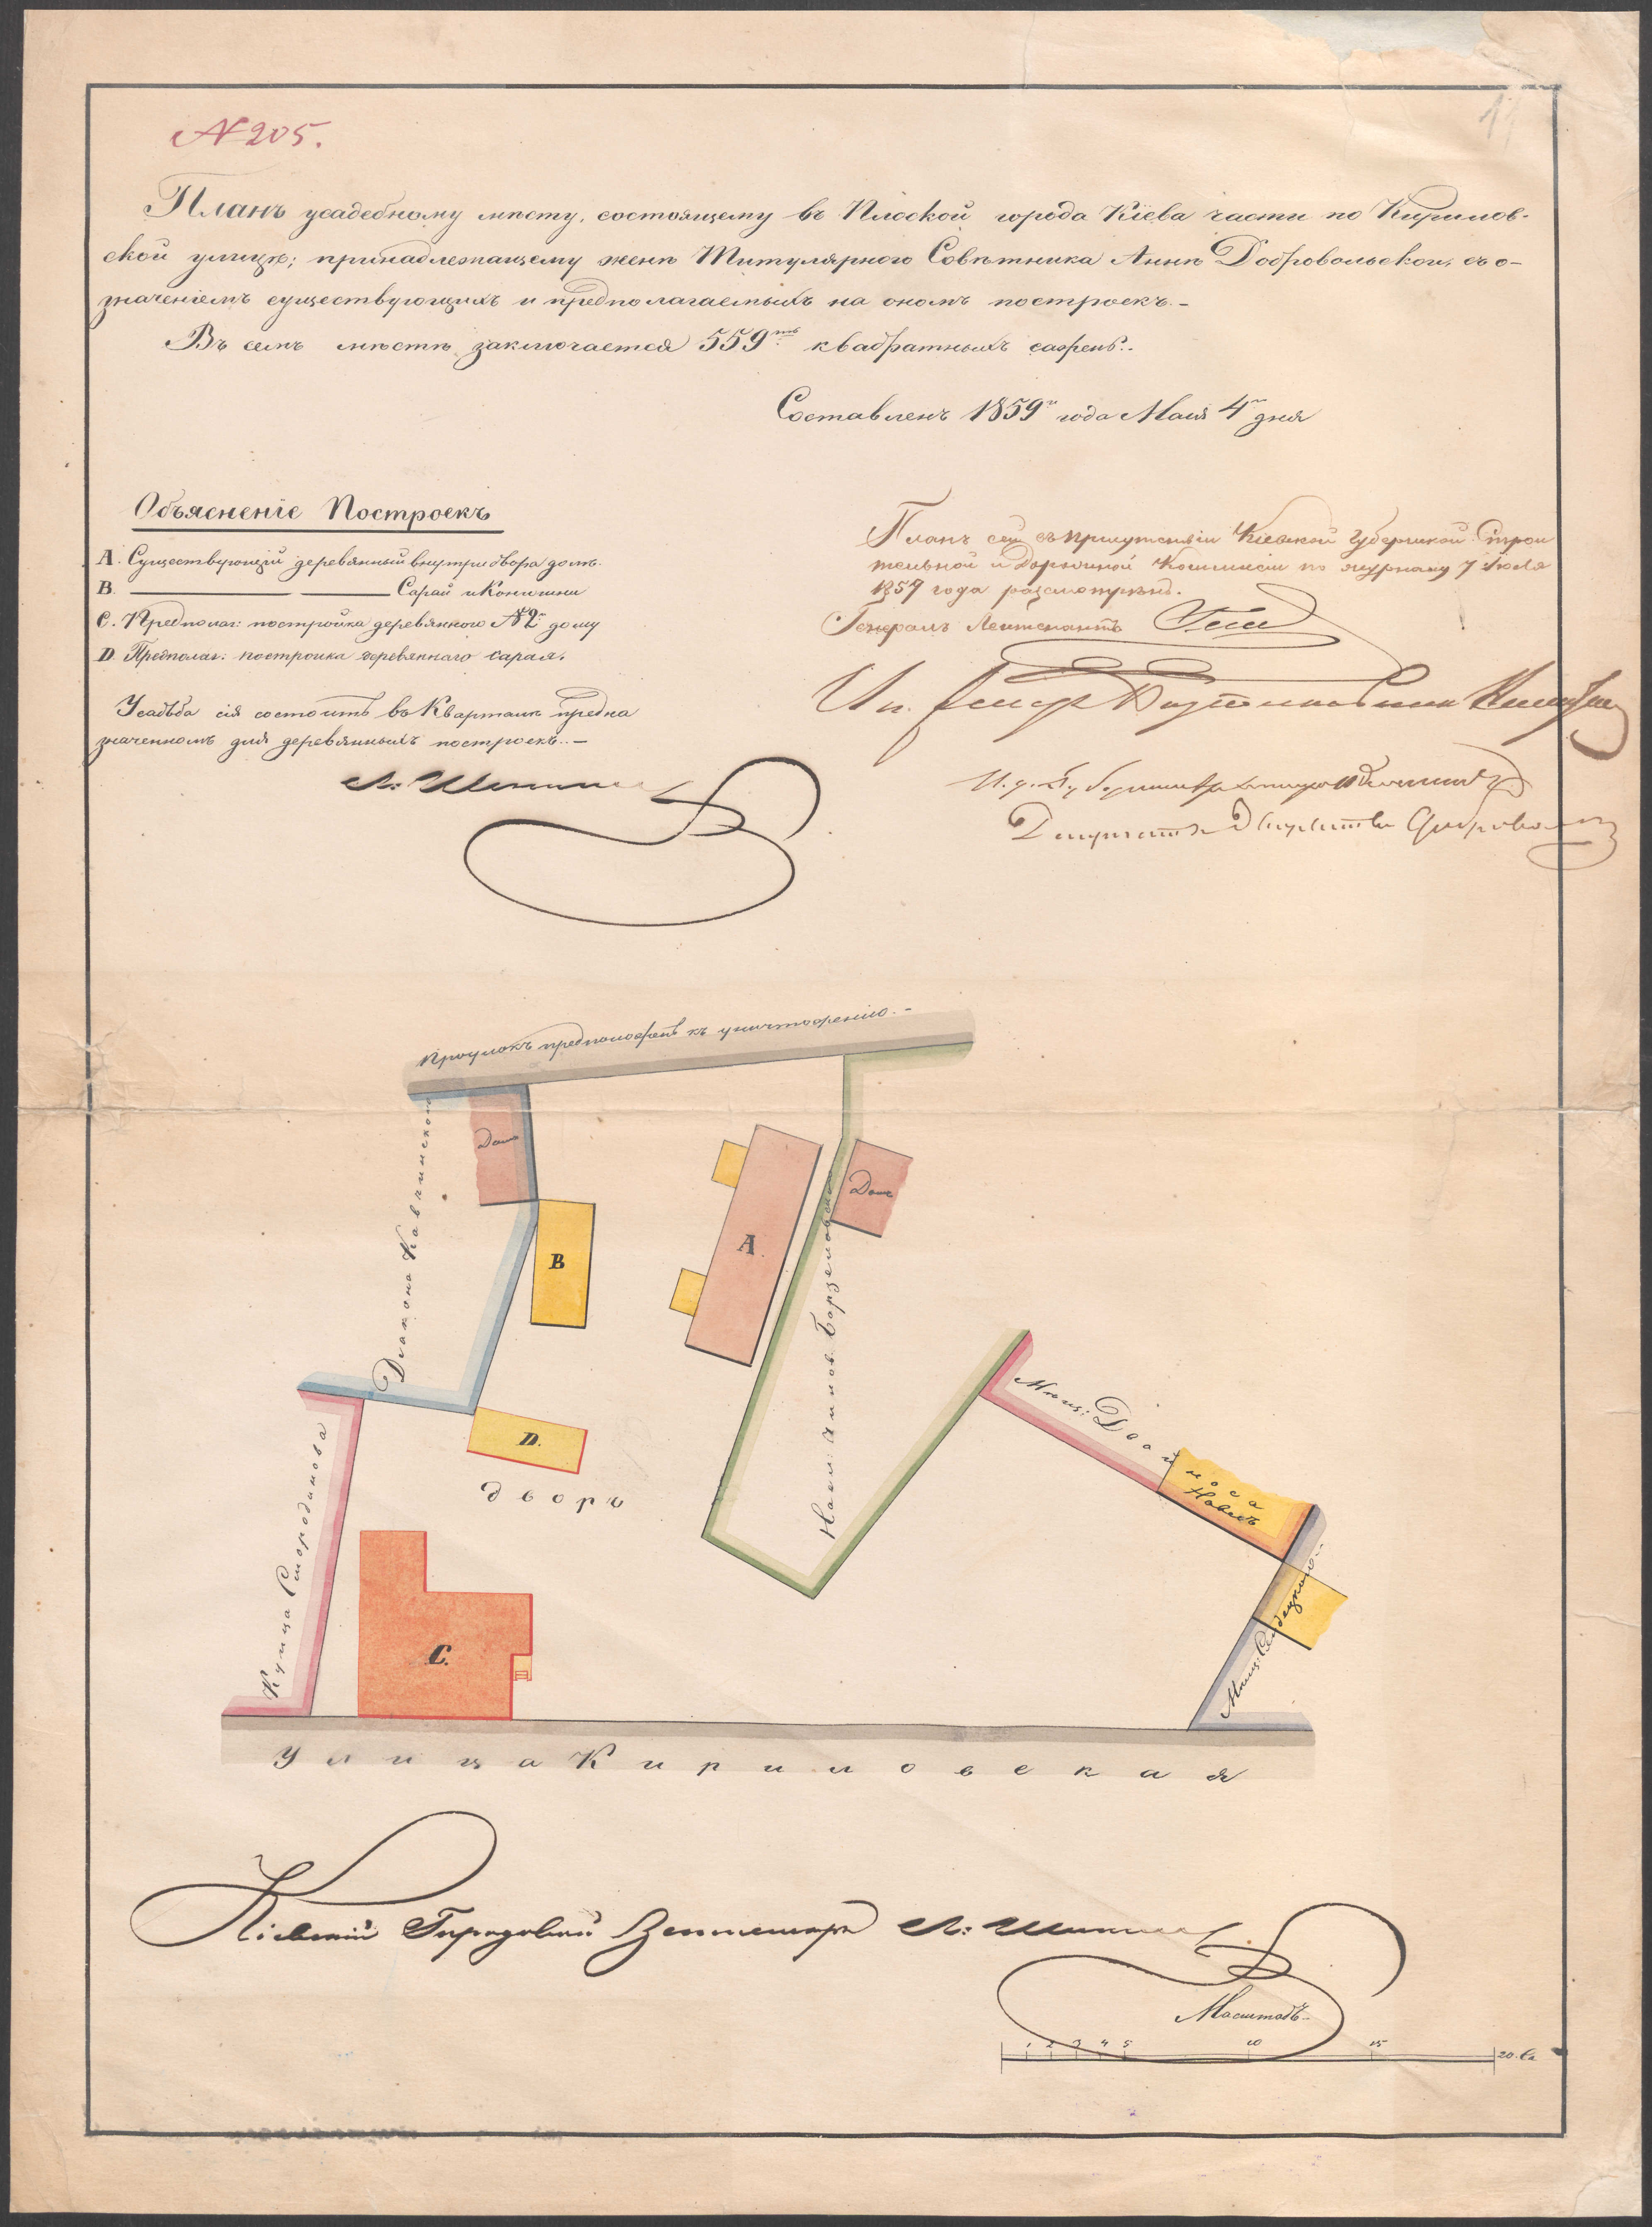 № 205.
Планъ усадебному мѣсту, состоящему въ Плоской города Кіева части по Кирилов-
ской улицѣ; принадлежащему женѣ Титулярного Совѣтника Аннѣ Добровольской, съ о-
значеніемъ существующихъ и предполагаемыхъ на ономъ построекъ.-
Въ семъ мѣстѣ заключается 559ть квадратныхъ сажень..
Составленъ 1859го года Маія 4го дня
Объясненіе Построекъ
A. Существующій деревянный внутри двора домъ.
B. Сарай и Конюшни
C. Предполаг: постройка деревянного № 2го дому
D. Предполаг: постройка деревяннаго сарая.
Усадьба сія состоитъ въ Кварталѣ предна
значенномъ для деревянныхъ построекъ..-
Планъ сей въ присутствіи Кіевской Губернской Строи
тельной и Дорожной Коммисіи по журналу 7 Іюля
1859 года разсмотрѣнъ.
Генералъ Лейтенантъ
Проулокъ предположенъ къ уничтоженію.-
Домъ
Домъ
A.
B
Діакона
D.
дворъ
C.
Купца Смородинова
Мѣщ:
Навесъ
Мѣщ:
Улица Кириловская
Кіевскій Городовой Землемѣръ Л:
Масштабъ..
1 2 3 4 5 10 15 20. Са